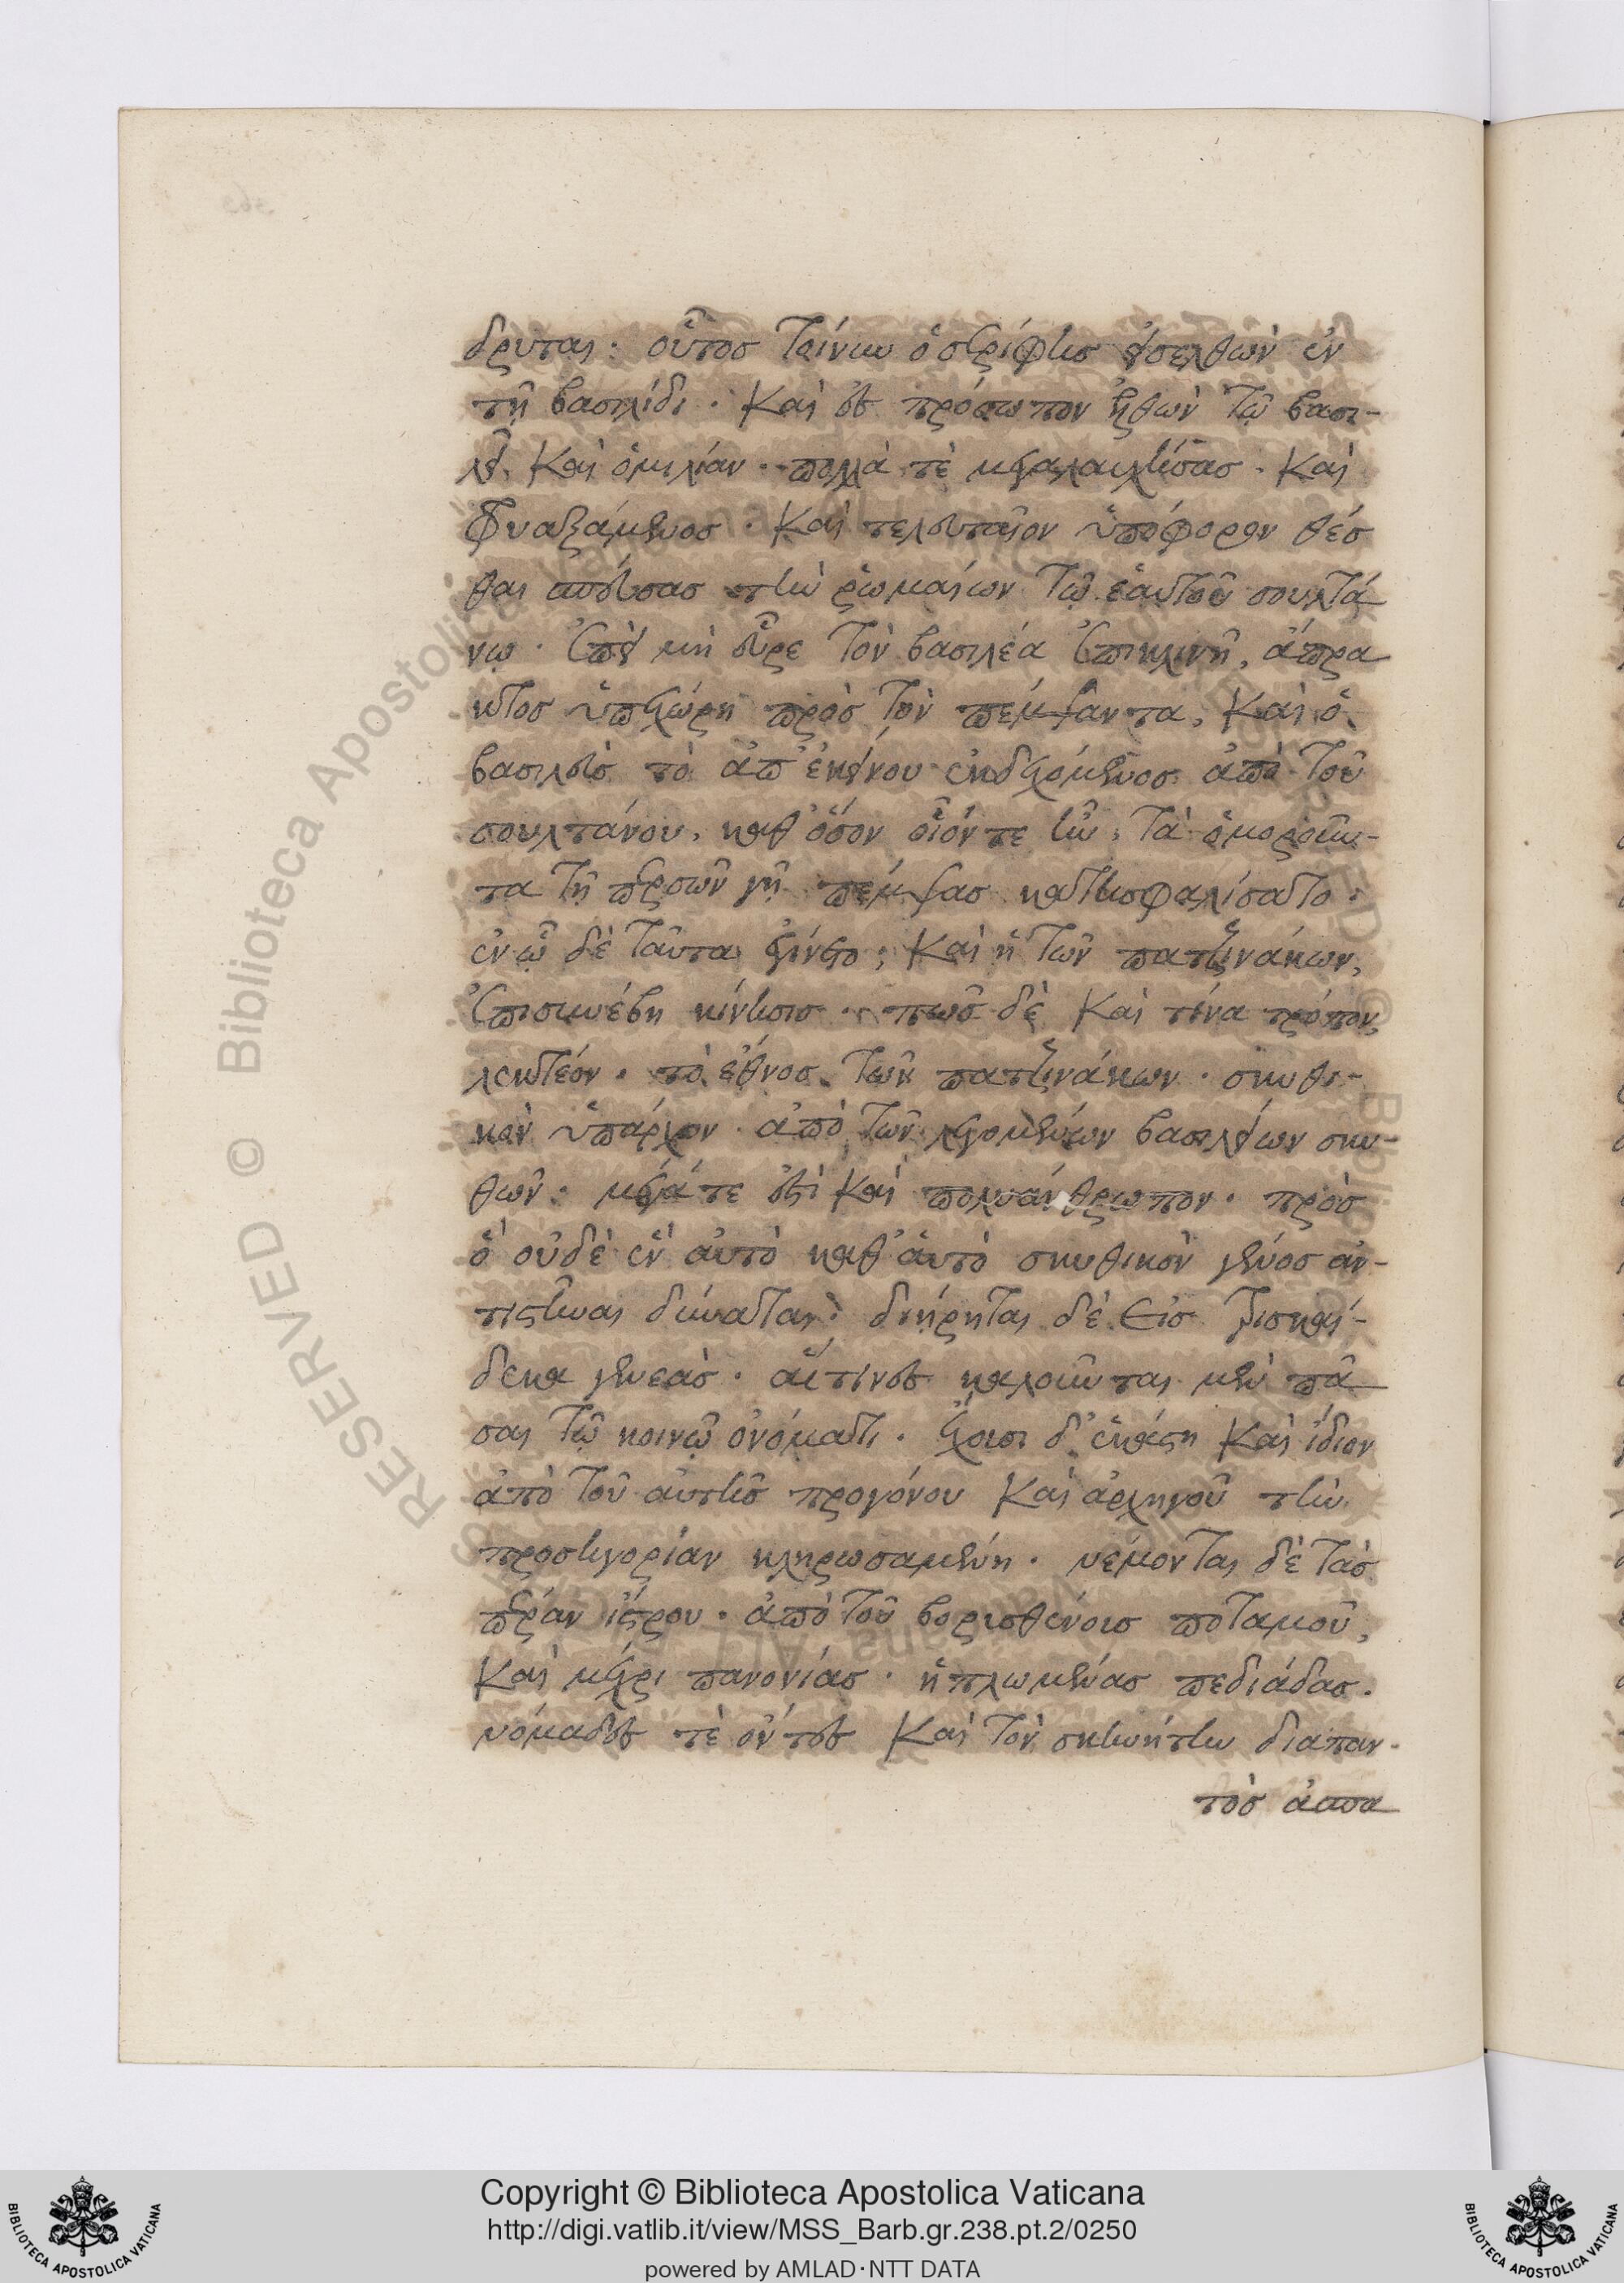 δρυται· οὗτος τοίνυν ὁ σερίφης εἰσελθὼν ἐν
τῇ βασιλίδι· καὶ ἐς πρόσωπον ἐλθὼν τῷ βασι-
λεῖ, καὶ ὁμιλίαν· πολλά τὲ μεγαλαυχήσας· καὶ
φρυαξάμενος· καὶ τελευταῖον ὑπόφορον θέσ
θαι σπεύσας τὴν ῥωμαίων τῷ ἑαυτοῦ σουλτά
νῳ· ἐπεὶ μὴ εὗρε τὸν βασιλέα ἐπικλινῆ, ἄπρα
κτος ὑπεχώρη πρὸς τὸν πέμψαντα, καὶ ὁ
βασιλεὺς τὸ ἀπ' ἐκείνου ἐκδεχόμενος ἀπὸ τοῦ
σουλτάνου, καθ' ὅσον οἷόν τε ἦν, τὰ ὁμοροῦν-
τα τῇ περσῶν γῇ πέμψας κατησφαλίσατο·
ἐν ᾧ δὲ ταῦτα ἐγίνετο, καὶ ἡ τῶν πατζινάκων,
ἐπισυνέβη κίνησις· πῶς δὲ καὶ τίνα τρόπον,
λεκτέον· τὸ ἔθνος τῶν πατζινάκων· σκυθι-
κὸν ὑπάρχον· ἀπὸ τῶν λεγομένων βασιλείων σκυ-
θῶν· μέγα τε ἐστὶ καὶ πολυάνθρωπον· πρὸς
ὃ οὐδὲ ἓν αὐτὸ καθ' αὑτὸ σκυθικὸν γένος ἀν-
τιστῆναι δύναται· διήρηται δὲ εἰς τρισκαί-
δεκα γενεάς· αἵτινες καλοῦνται μὲν πᾶ
σαι τῷ κοινῷ ὀνόματι· ἔχουσι δ' ἑκάστη καὶ ἴδιον
ἀπὸ τοῦ αὐτῆς προγόνου καὶ ἀρχηγοῦ τὴν
προσηγορίαν κληρωσαμένη· νέμονται δὲ τὰς
πέραν ἴστρου· ἀπὸ τοῦ βορισθένους ποταμοῦ,
καὶ μέχρι πανονίας· ἡπλωμένας πεδιάδας·
νόμαδες τὲ ὄντες καὶ τὸν σκηνήτην διαπαν-
τὸς ἀσπα
Copyright © Biblioteca Apostolica Vaticana
http://digi.vatlib.it/view/MSS_Barb.gr.238.pt.2/0250
powered by AMLAD·NTT DATA